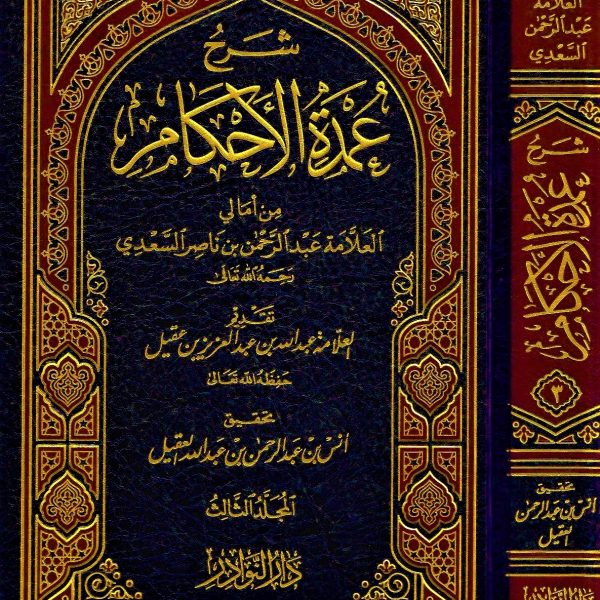 شرح
عمدة الأحكام
من أمالي
العلامة عبد الرحمن بن ناصر السعدي
رحمه الله تعالى
تقديم
العلامة عبد الله بن عبد العزيز بن عقيل
حفظه الله تعالى
تحقيق
أنس بن عبد الرحمن بن عبد الله العقيل
المجلد الثالث
دار النوادر
العلامة
عبد الرحمن
السعدي
شرح
عمدة الأحكام
٣
تحقيق
أنس بن عبد الرحمن
العقيل
دار النوادر